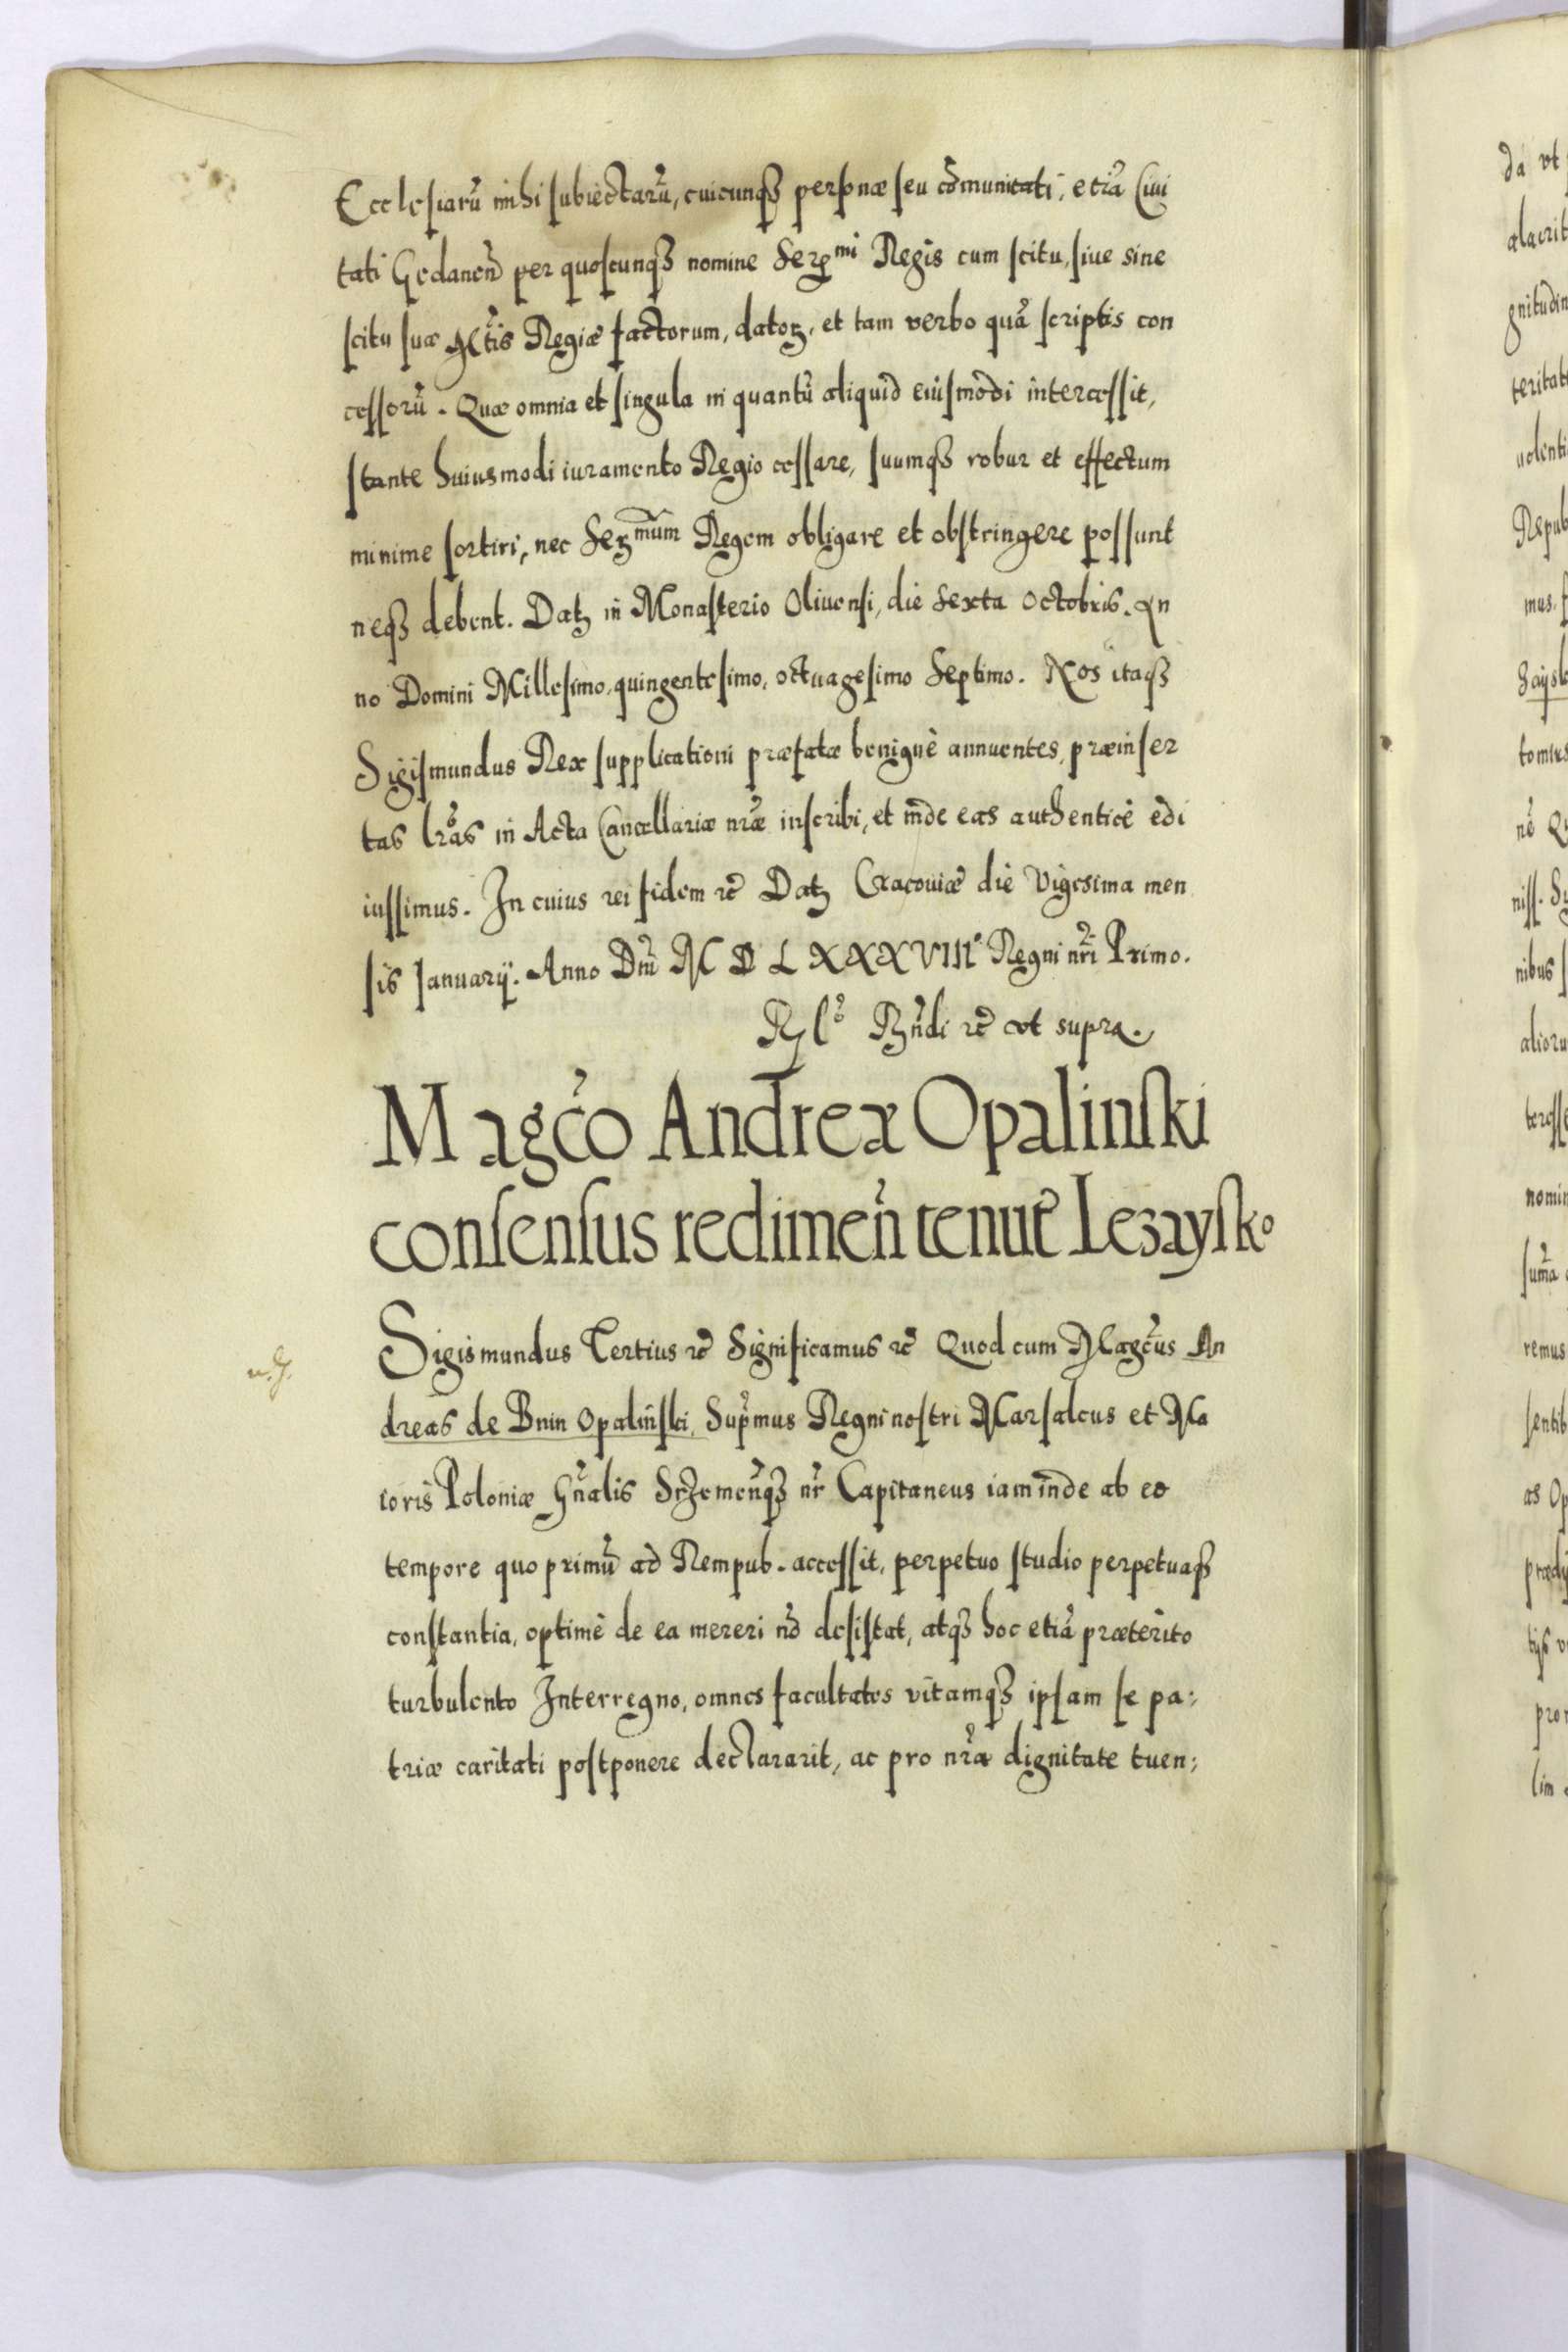 Ecclesiarũ mihi subiectarũ, cuicunqȝ personæ seu cõmunitati, etiã Ciui
tati Gedaneñ per quoscunqȝ nomine Serᵐⁱ Regis cum scitu, siue sine
scitu suæ Mtis Regiæ factorum, datoꝝ, et tam verbo quã scriptis con
cessorũ. Quæ omnia et singula in quantũ aliquid eiusmodi intercessit,
stante huiusmodi iuramento Regio cessare, suumqȝ robur et effectum
minime sortiri, nec Serᵐᵘᵐ Regem obligare et obstringere possunt
neqȝ debent. Datȝ in Monasterio Oliuensi, die Sexta Octobris. An
no Domini Millesimo, quingentesimo, octuagesimo Septimo. Nos itaqȝ
Sigismundus Rex supplicationi præfatæ benignè annuentes, præinser
tas lr̃as in Acta Cancellariæ nr̃æ inscribi, et inde eas authenticè edi
iussimus. In cuius rei fidem ꝛc̃ Datȝ Cracouiæ die Vigesima men
sis Januarij. Anno Dñi M D L XXXVIII° Regni nr̃i Primo.
Rlõ Rñdi ꝛc̃ vt supra.
Magc̃o Andreæ Opalinski
consensus redimeñ tenut̃ Lezaysko
Sigismundus Tertius ꝛc̃ Significamus ꝛc̃ Quod cum Magc̃us An
dreas de Bnin Opalinski, Supr̃mus Regni nostri Marsalcus et Ma
ioris Poloniæ Gñalis Srzemeñqȝ nr̃ Capitaneus iam inde ab eo
tempore quo primũ ad Rempub. accessit, perpetuo studio perpetuaqȝ
constantia, optimè de ea mereri nõ desistat, atqȝ hoc etiã præterito
turbulento Interregno, omnes facultates vitamqȝ ipsam se pa:
triæ caritati postponere declararit, ac pro nr̃a dignitate tuen: